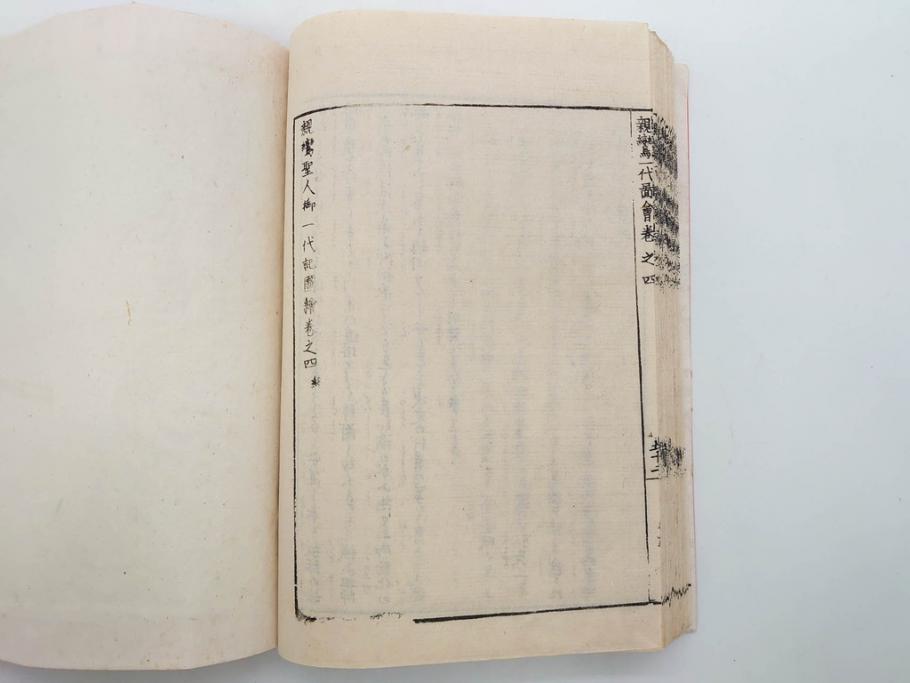 親鸞一代圖會卷之四
五十二
親鸞聖人御一代記圖繪卷之四終